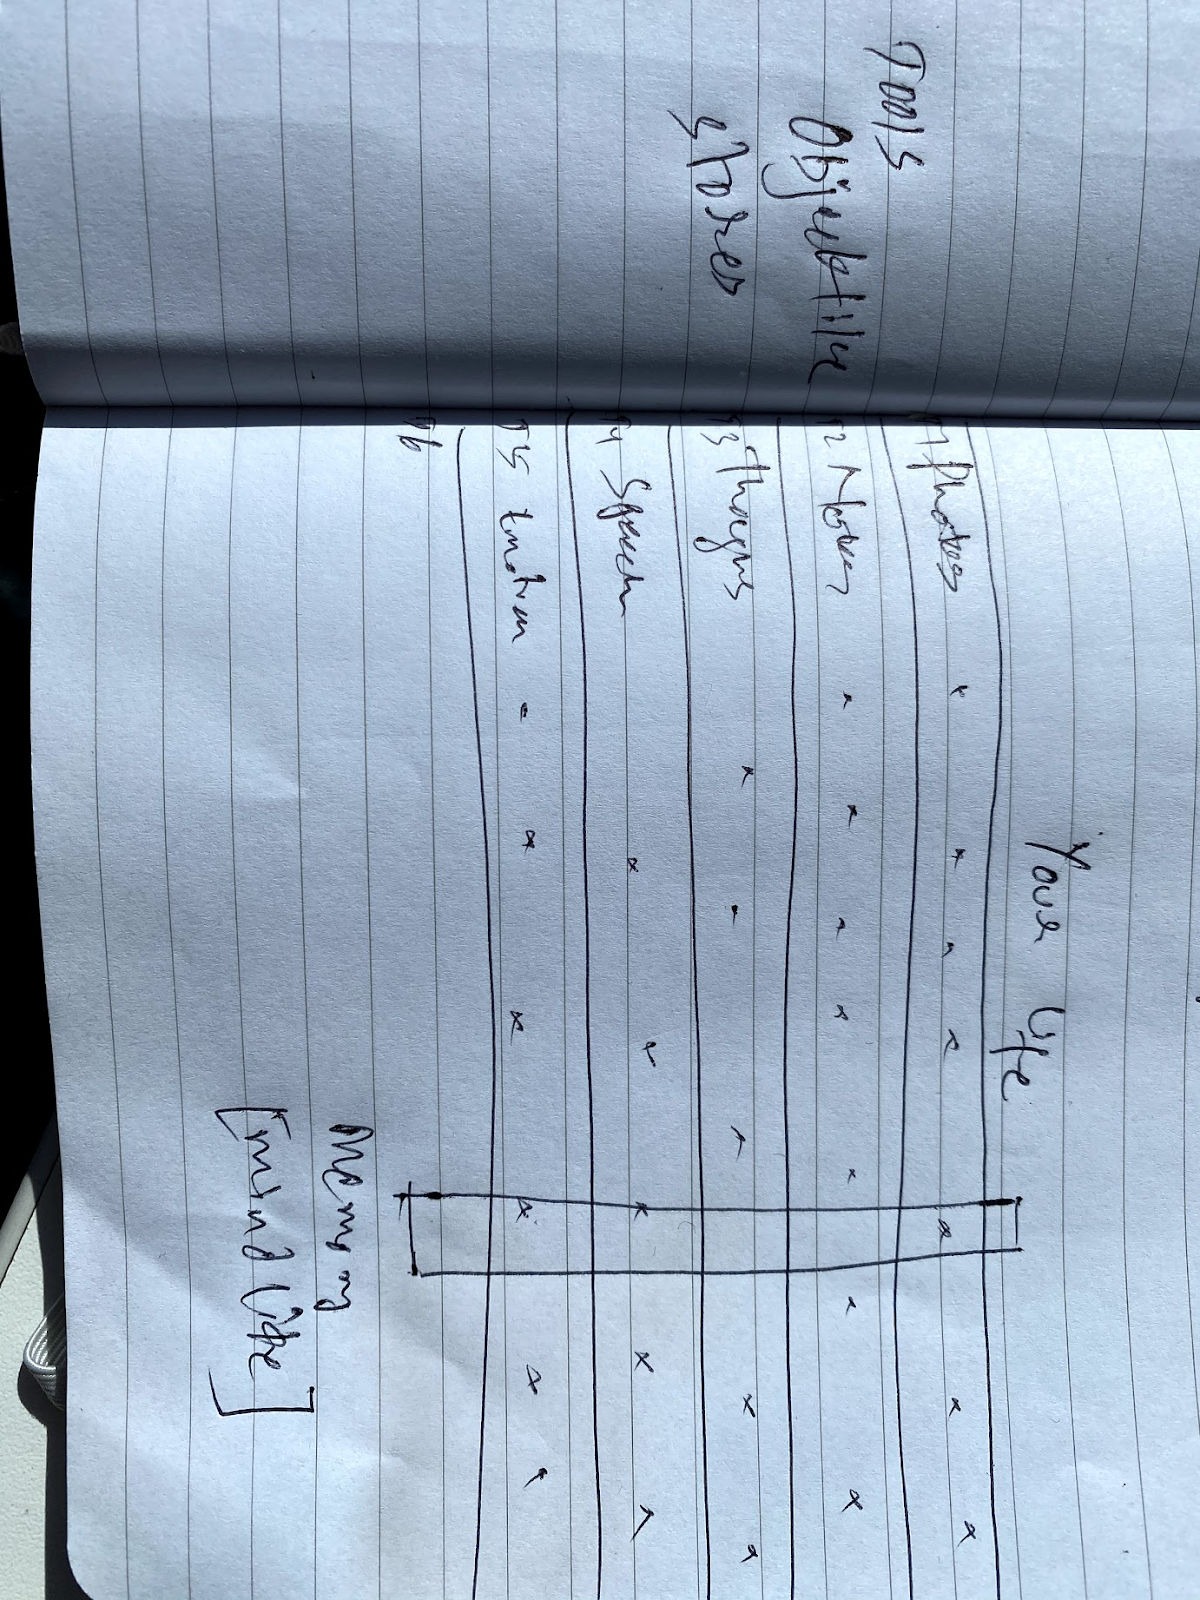 Tools
Objective
stores
Your Life
T1 Photos
T2 Notes
T3 Thoughs
T4 Speech
T5 Emotion
T6
Memory
[Mind Life]